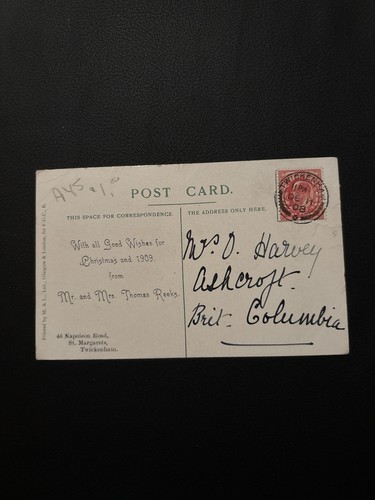 A45
POST CARD.
THIS SPACE FOR CORRESPONDENCE.
THE ADDRESS ONLY HERE.
With all Good Wishes for
Christmas and 1909.
from
Mr. and Mrs. Thomas Reeks.
46 Napoleon Road,
St. Margarets,
Twickenham.
Mrs O. Harvey
Ashcroft.
Brit. Columbia
TWICKENHAM
08
Printed by M. & L., Ltd., Glasgow & London, for